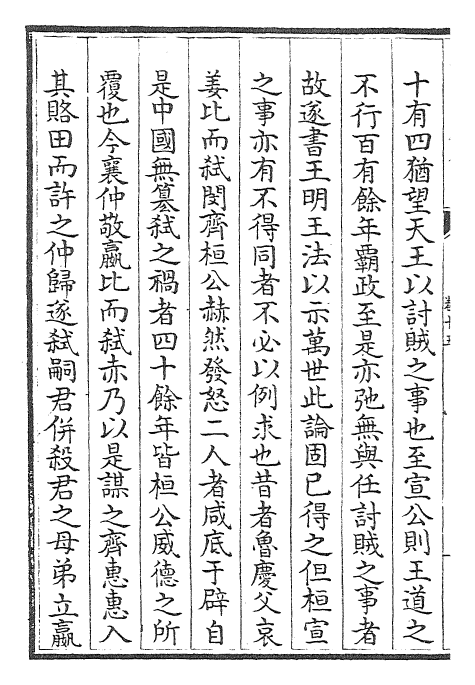 十有四猶望天王以討賊之事也至宣公則王道之
不行百有餘年霸政至是亦弛無與任討賊之事者
故遂書王明王法以示萬世此論固已得之但桓宣
之事亦有不得同者不必以例求也昔者魯慶父哀
姜比而弑閔齊桓公赫然發怒二人者咸底于辟自
是中國無篡弑之禍者四十餘年皆桓公威德之所
覆也今襄仲敬嬴比而弑赤乃以是謀之齊惠惠入
其賂田而許之仲歸遂弑嗣君併殺君之母弟立嬴